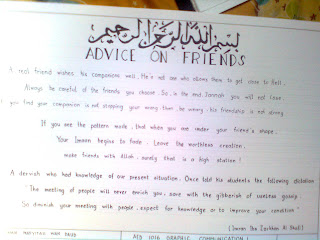 بسم الله الرحمن الرحيم
ADVICE ON FRIENDS
A real friend wishes his companions well. He's not one who allows them to get close to Hell.
Always be careful of the friends you choose. So in the end Jannah you will not lose
you find your companion is not stopping your wrong then be wary, his friendship is not strong
If you are the pattern mode, that when you are under your friend's shape,
Your Imaan begins to fade. Leave the worthless creation,
make friends with Allah, surely that is a high station!
A dervish who had knowledge of our present situation. Once told his students the following dictation
"The meeting of people will never enrich you, save with the gibberish of useless gossip.
So diminish your meeting with people, expect for knowledge or to improve your condition"
(Imran Ibn
AED 1016 GRAPHIC COMMUNICATION